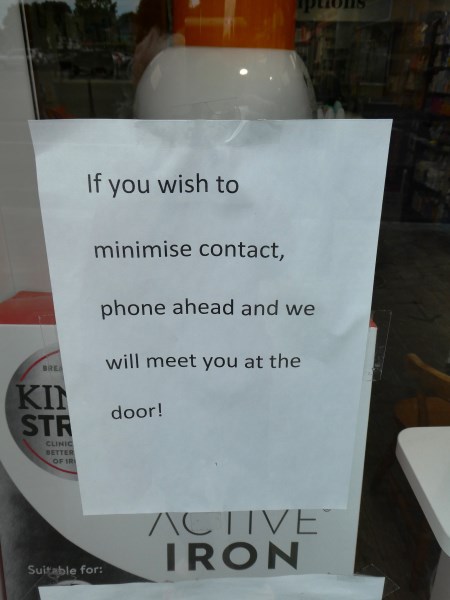 iptions
If you wish to
minimise contact,
phone ahead and we
will meet you at the
door!
STR
CLINIC
BETTER
OF IR
ACTIVE
IRON
Suitable for: